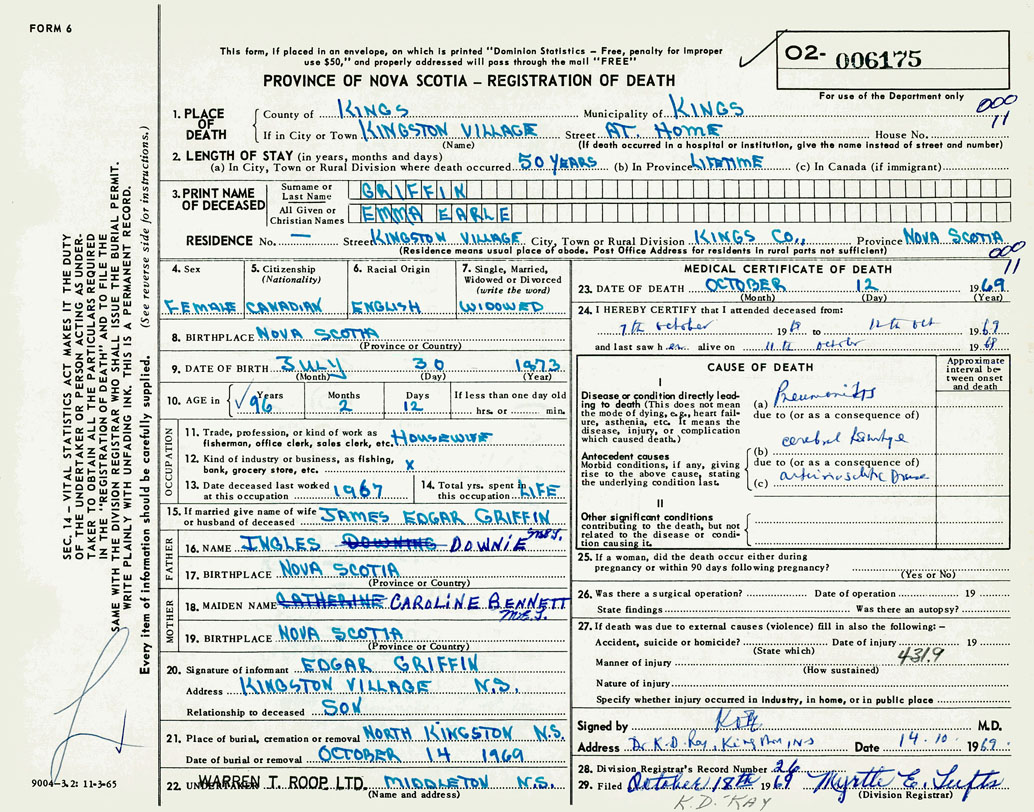 FORM 6
This form, if placed in an envelope, on which is printed "Dominion Statistics – Free, penalty for improper
use $50," and properly addressed will pass through the mail "FREE"
O2- 006175
For use of the Department only
PROVINCE OF NOVA SCOTIA – REGISTRATION OF DEATH
000
11
1. PLACE OF DEATH
County of KINGS Municipality of KINGS
If in City or Town KINGSTON VILLAGE Street AT HOME House No.
(Name) (If death occurred in a hospital or institution, give the name instead of street and number)
2. LENGTH OF STAY (in years, months and days)
(a) In City, Town or Rural Division where death occurred 50 YEARS (b) In Province LIFETIME (c) In Canada (if immigrant)
3. PRINT NAME OF DECEASED
Surname or Last Name GRIFFIN
All Given or Christian Names EMMA EARLE
RESIDENCE No. — Street KINGSTON VILLAGE City, Town or Rural Division KINGS CO., Province NOVA SCOTIA
(Residence means usual place of abode. Post Office Address for residents in rural parts not sufficient)
000
11
4. Sex
FEMALE
5. Citizenship
(Nationality)
CANADIAN
6. Racial Origin
ENGLISH
7. Single, Married,
Widowed or Divorced
(write the word)
WIDOWED
8. BIRTHPLACE NOVA SCOTIA
(Province or Country)
9. DATE OF BIRTH JULY 30 1873
(Month) (Day) (Year)
10. AGE in Years 96 Months 2 Days 12 If less than one day old
hrs. or min.
OCCUPATION
11. Trade, profession, or kind of work as
fisherman, office clerk, sales clerk, etc. HOUSEWIFE
12. Kind of industry or business, as fishing,
bank, grocery store, etc. X
13. Date deceased last worked
at this occupation 1967
14. Total yrs. spent in
this occupation LIFE
15. If married give name of wife
or husband of deceased JAMES EDGAR GRIFFIN
FATHER
16. NAME INGLES DOWNING DOWNIE
17. BIRTHPLACE NOVA SCOTIA
(Province or Country)
MOTHER
18. MAIDEN NAME CATHERINE CAROLINE BENNETT
19. BIRTHPLACE NOVA SCOTIA
(Province or Country)
20. Signature of informant EDGAR GRIFFIN
Address KINGSTON VILLAGE N.S.
Relationship to deceased SON
21. Place of burial, cremation or removal NORTH KINGSTON N.S.
Date of burial or removal OCTOBER 14 1969
22. UNDERTAKER WARREN T. ROOP LTD. MIDDLETON N.S.
(Name and address)
MEDICAL CERTIFICATE OF DEATH
23. DATE OF DEATH OCTOBER 12 1969
(Month) (Day) (Year)
24. I HEREBY CERTIFY that I attended deceased from:
7th October 19 to 12th Oct 1969
and last saw her alive on 11th October 19
CAUSE OF DEATH
Approximate
interval be-
tween onset
and death
I
Disease or condition directly lead-
ing to death (This does not mean
the mode of dying, e.g., heart fail-
ure, asthenia, etc. It means the
disease, injury, or complication
which caused death.)
(a) Pneumonitis
due to (or as a consequence of)
Antecedent causes
Morbid conditions, if any, giving
rise to the above cause, stating
the underlying condition last.
(b) cerebral
due to (or as a consequence of)
(c)
II
Other significant conditions
contributing to the death, but not
related to the disease or condi-
tion causing it.
25. If a woman, did the death occur either during
pregnancy or within 90 days following pregnancy?
(Yes or No)
26. Was there a surgical operation? Date of operation 19
State findings Was there an autopsy?
27. If death was due to external causes (violence) fill in also the following: –
Accident, suicide or homicide? Date of injury 19
(State which)
Manner of injury 431.9
(How sustained)
Nature of injury
Specify whether injury occurred in industry, in home, or in public place
Signed by M.D.
Address Dr K.D. Kay, Kingston, NS Date 14.10. 1969.
28. Division Registrar's Record Number 26
29. Filed October 18th 1969 Myrtle E. Tufts
(Division Registrar)
K.D. KAY
SEC. 14 – VITAL STATISTICS ACT MAKES IT THE DUTY
OF THE UNDERTAKER OR PERSON ACTING AS UNDER-
TAKER TO OBTAIN ALL THE PARTICULARS REQUIRED
IN THE "REGISTRATION OF DEATH" AND TO FILE THE
SAME WITH THE DIVISION REGISTRAR WHO SHALL ISSUE THE BURIAL PERMIT.
WRITE PLAINLY WITH UNFADING INK. THIS IS A PERMANENT RECORD.
Every item of information should be carefully supplied. (See reverse side for instructions.)
9004–3.2: 11-3-65